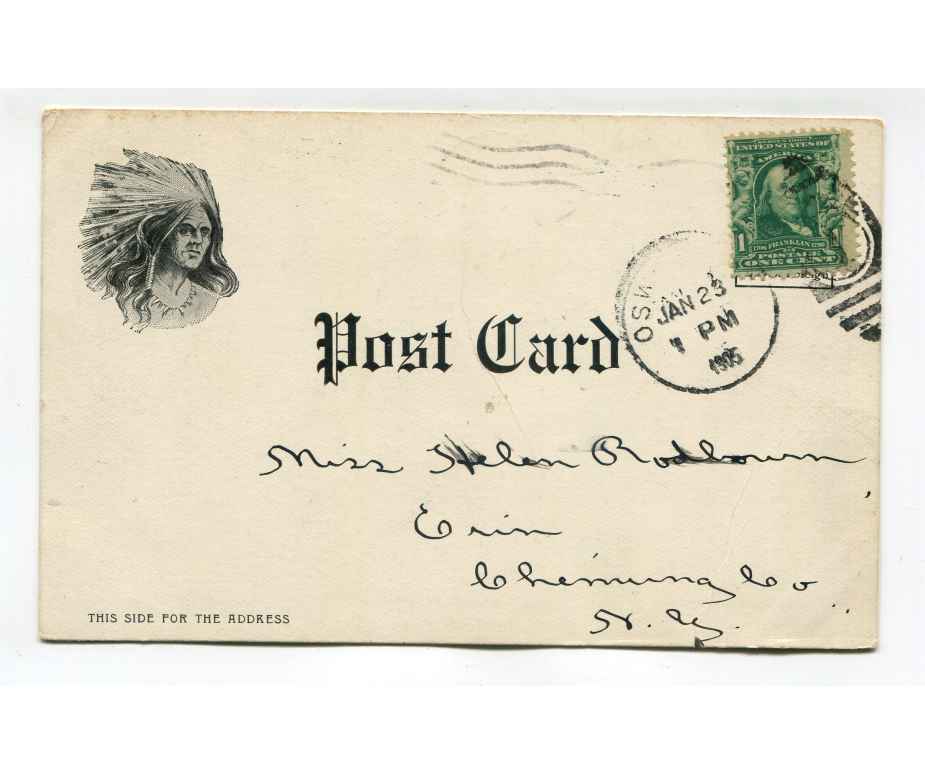 UNITED STATES OF
AMERICA
1 1706 FRANKLIN 1790 1
POSTAGE
ONE CENT
JAN 23
1 PM
1905
Post Card
Miss Helen Rodbourn
Erin
Chemung Co
N. Y.
THIS SIDE FOR THE ADDRESS